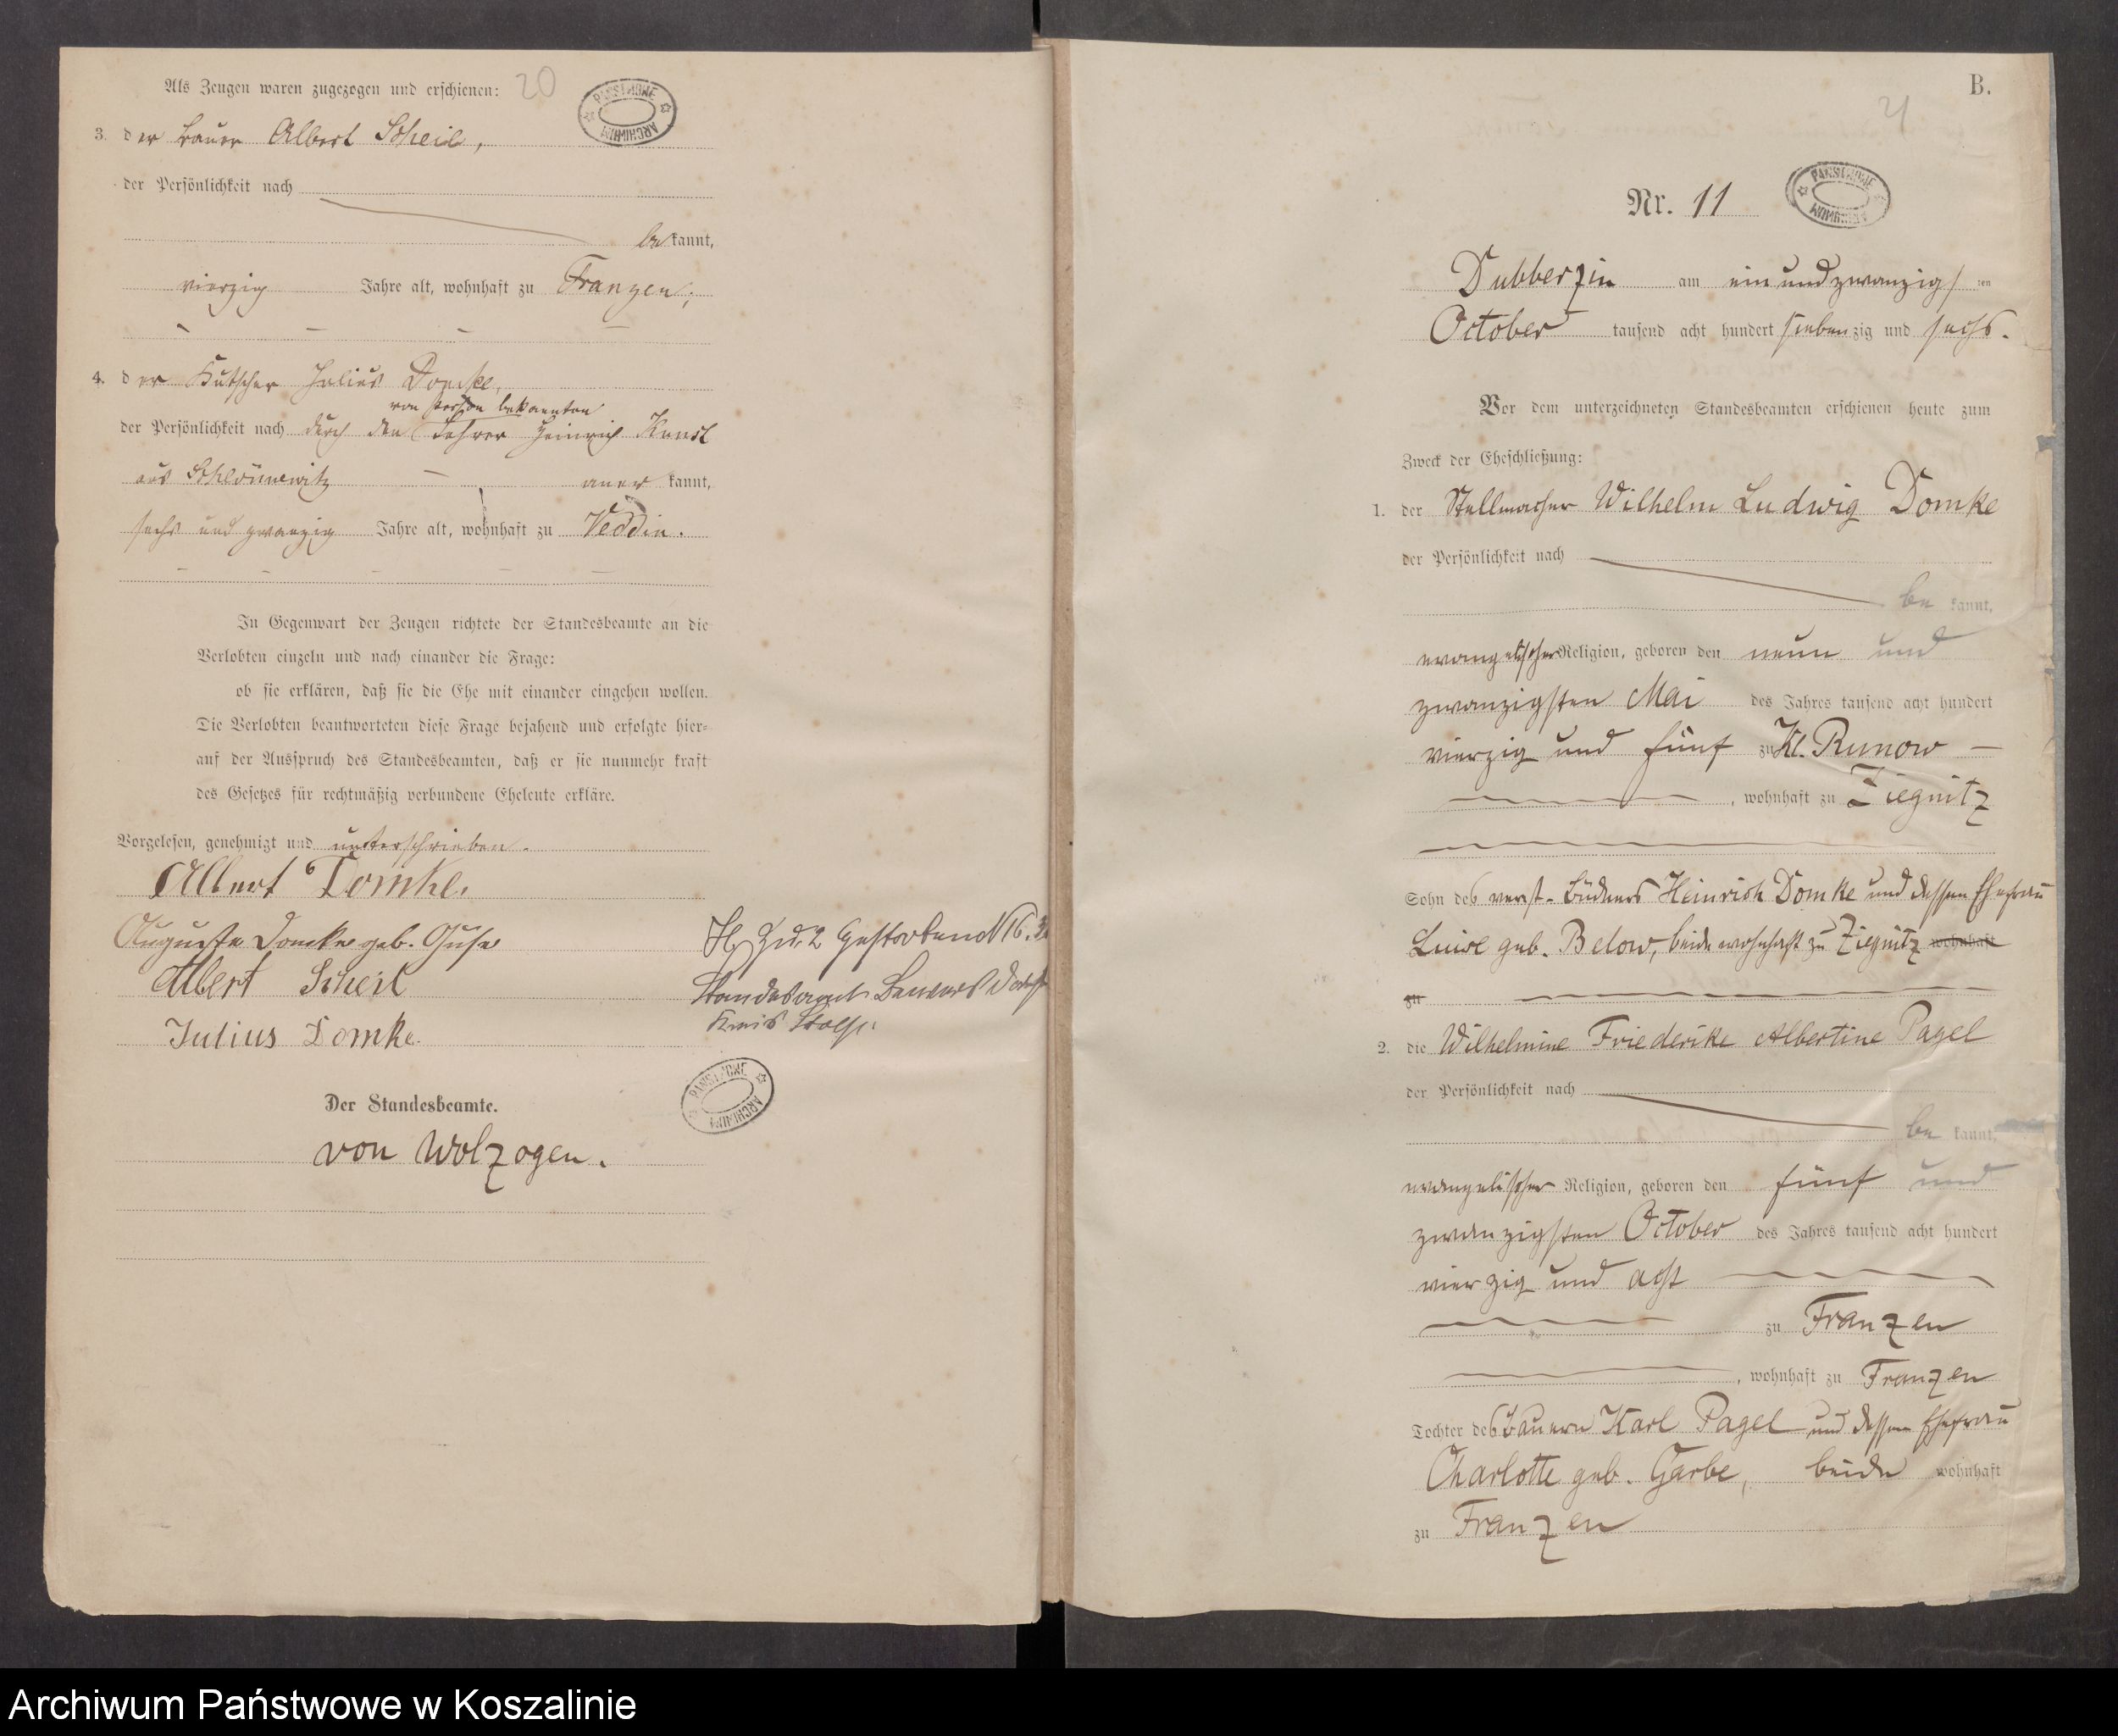 Als Zeugen waren zugezogen und erschienen: 20
3. der Bauer Albert Scheil,
der Persönlichkeit nach
bekannt,
vierzig Jahre alt, wohnhaft zu Franzen;
4. der Kutscher Julius Domke,
von Person bekannten
der Persönlichkeit nach durch den Lehrer Heinrich
aus anerkannt,
sechs und zwanzig Jahre alt, wohnhaft zu Veddin.
In Gegenwart der Zeugen richtete der Standesbeamte an die
Verlobten einzeln und nach einander die Frage:
ob sie erklären, daß sie die Ehe mit einander eingehen wollen.
Die Verlobten beantworteten diese Frage bejahend und erfolgte hier-
auf der Ausspruch des Standesbeamten, daß er sie nunmehr kraft
des Gesetzes für rechtmäßig verbundene Eheleute erkläre.
Vorgelesen, genehmigt und unterschrieben.
Albert Domke.
Auguste Domke geb. Guse
Albert Scheil
Julius Domke.
zu 2 Gestorben N 16.
Standesamt
Kreis Stolp.
Der Standesbeamte.
von Wolzogen.
B.
21
Nr. 11
Dubberzin am ein und zwanzigsten
October tausend acht hundert siebenzig und sechs.
Vor dem unterzeichneten Standesbeamten erschienen heute zum
Zweck der Eheschließung:
1. der Stellmacher Wilhelm Ludwig Domke
der Persönlichkeit nach
bekannt,
evangelischer Religion, geboren den neun und
zwanzigsten Mai des Jahres tausend acht hundert
vierzig und fünf zu Kl. Runow
, wohnhaft zu Ziegnitz
Sohn des verst. Büdners Heinrich Domke und dessen Ehefrau
Luise geb. Below, beide wohnhaft zu Ziegnitz wohnhaft
zu
2. die Wilhelmine Friederike Albertine Pagel
der Persönlichkeit nach
bekannt,
evangelischer Religion, geboren den fünf und
zwanzigsten October des Jahres tausend acht hundert
vierzig und acht
zu Franzen
, wohnhaft zu Franzen
Tochter des Bauern Karl Pagel und dessen Ehefrau
Charlotte geb. Garbe, beide wohnhaft
zu Franzen
Archiwum Państwowe w Koszalinie